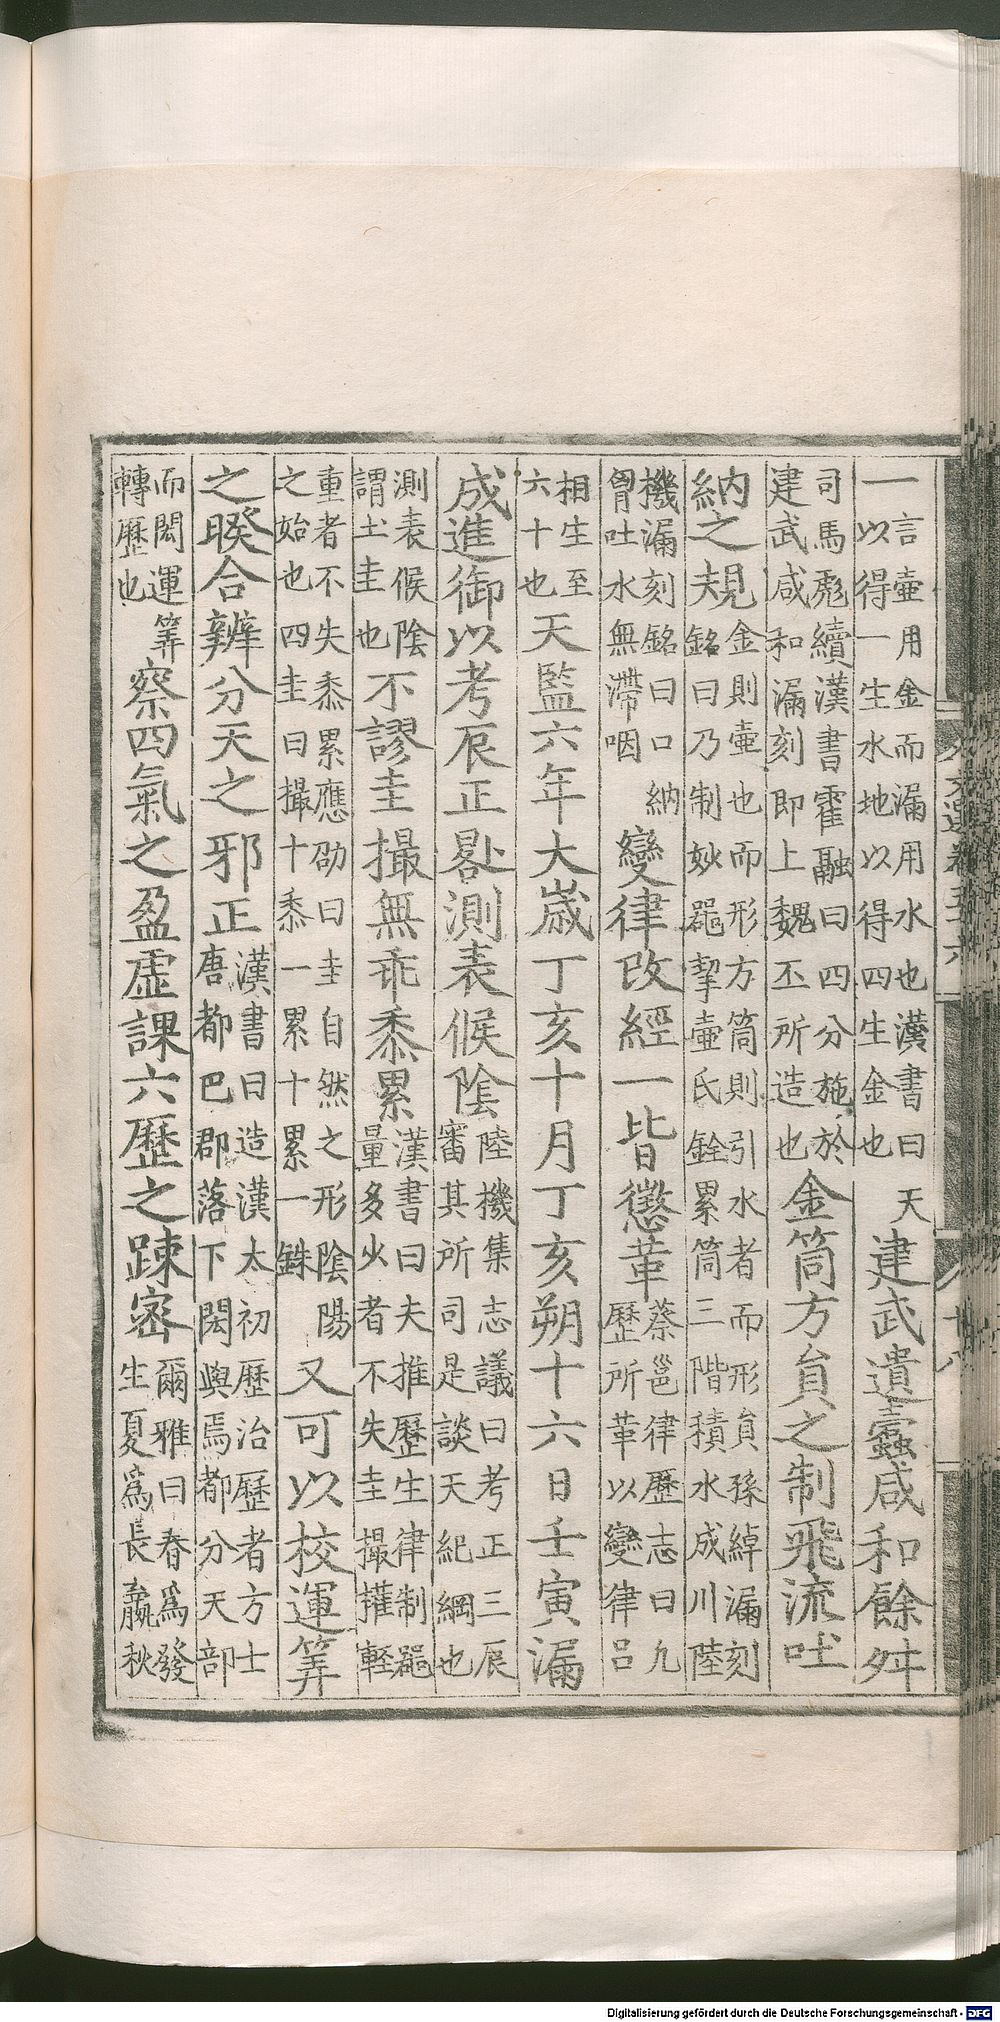 一言壺用金而漏用水也漢書曰天以得一生水地以得四生金也建武遺蠹咸和餘舛
司馬彪續漢書霍融曰四分施於建武咸和漏刻即上魏丕所造也金筒方員之制飛流吐
納之規金則壺也而形方筒則引水者而形員孫綽漏刻銘曰乃制妙噐挈壺氏銓累筒三階積水成川陸
機漏刻銘曰口納胷吐水無滯咽變律改經一皆懲革蔡邕律歷志曰九歷所革以變律呂
相生至六十也天監六年大歲丁亥十月丁亥朔十六日壬寅漏
成進御以考辰正晷測表候陰陸機集志議曰考正三辰審其所司是談天紀綱也
測表候陰謂土圭也不謬圭撮無乖黍累漢書曰夫推歷生律制噐量多火者不失圭撮權輕
重者不失黍累應劭曰圭自然之形陰陽之始也四圭曰撮十黍一累十累一銖又可以校運筭
之睽合辨分天之邪正漢書曰造漢太初歷治歷者方士唐都巴郡落下閎與焉都分天部
而閎運筭轉歷也察四氣之盈虛課六歷之踈密爾雅曰春爲發生夏爲長嬴秋
Digitalisierung gefördert durch die Deutsche Forschungsgemeinschaft - DFG